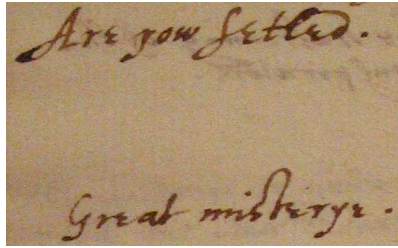 Are yow setled.
Great misterye.